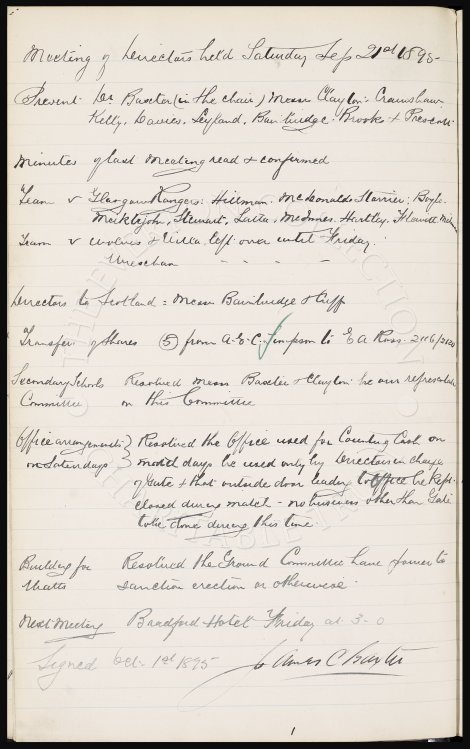 Meeting of Directors held Saturday Sep 21st 1895
Present Dr Baxter (in the chair) Messrs Clayton. Crawshaw
Kelly, Davies, Leyland, Bainbridge. Brooks &
Minutes of last Meeting read & confirmed
Team v Glasgow Rangers: Hillman. McDonald Storrier. Boyle
Meiklejohn, Stewart, Latta, McInnes. Hartley. Flewitt
Team v Wolves & Villa left over until Friday.
Wrexham - - - -
Directors to Scotland = Messrs Bainbridge & Cuff
Transfers of Shares (5) from A.E.C. Simpson to E A Ross
Secondary Schools Resolved Messrs Baxter & Clayton be our
Committee on this Committee
Office arrangements } Resolved the Office used for Counting Cash on
on Saturdays } match days be used only by Directors in charge
of Gate & that outside door leading to Office be kept
closed during match - no business other than Gate
to be done during this time
Building for Resolved the Ground Committee have power to
sanction erection or otherwise.
Next Meeting Bradford Hotel Friday at 3-0
Signed Oct 1st 1895 James C Baxter
1